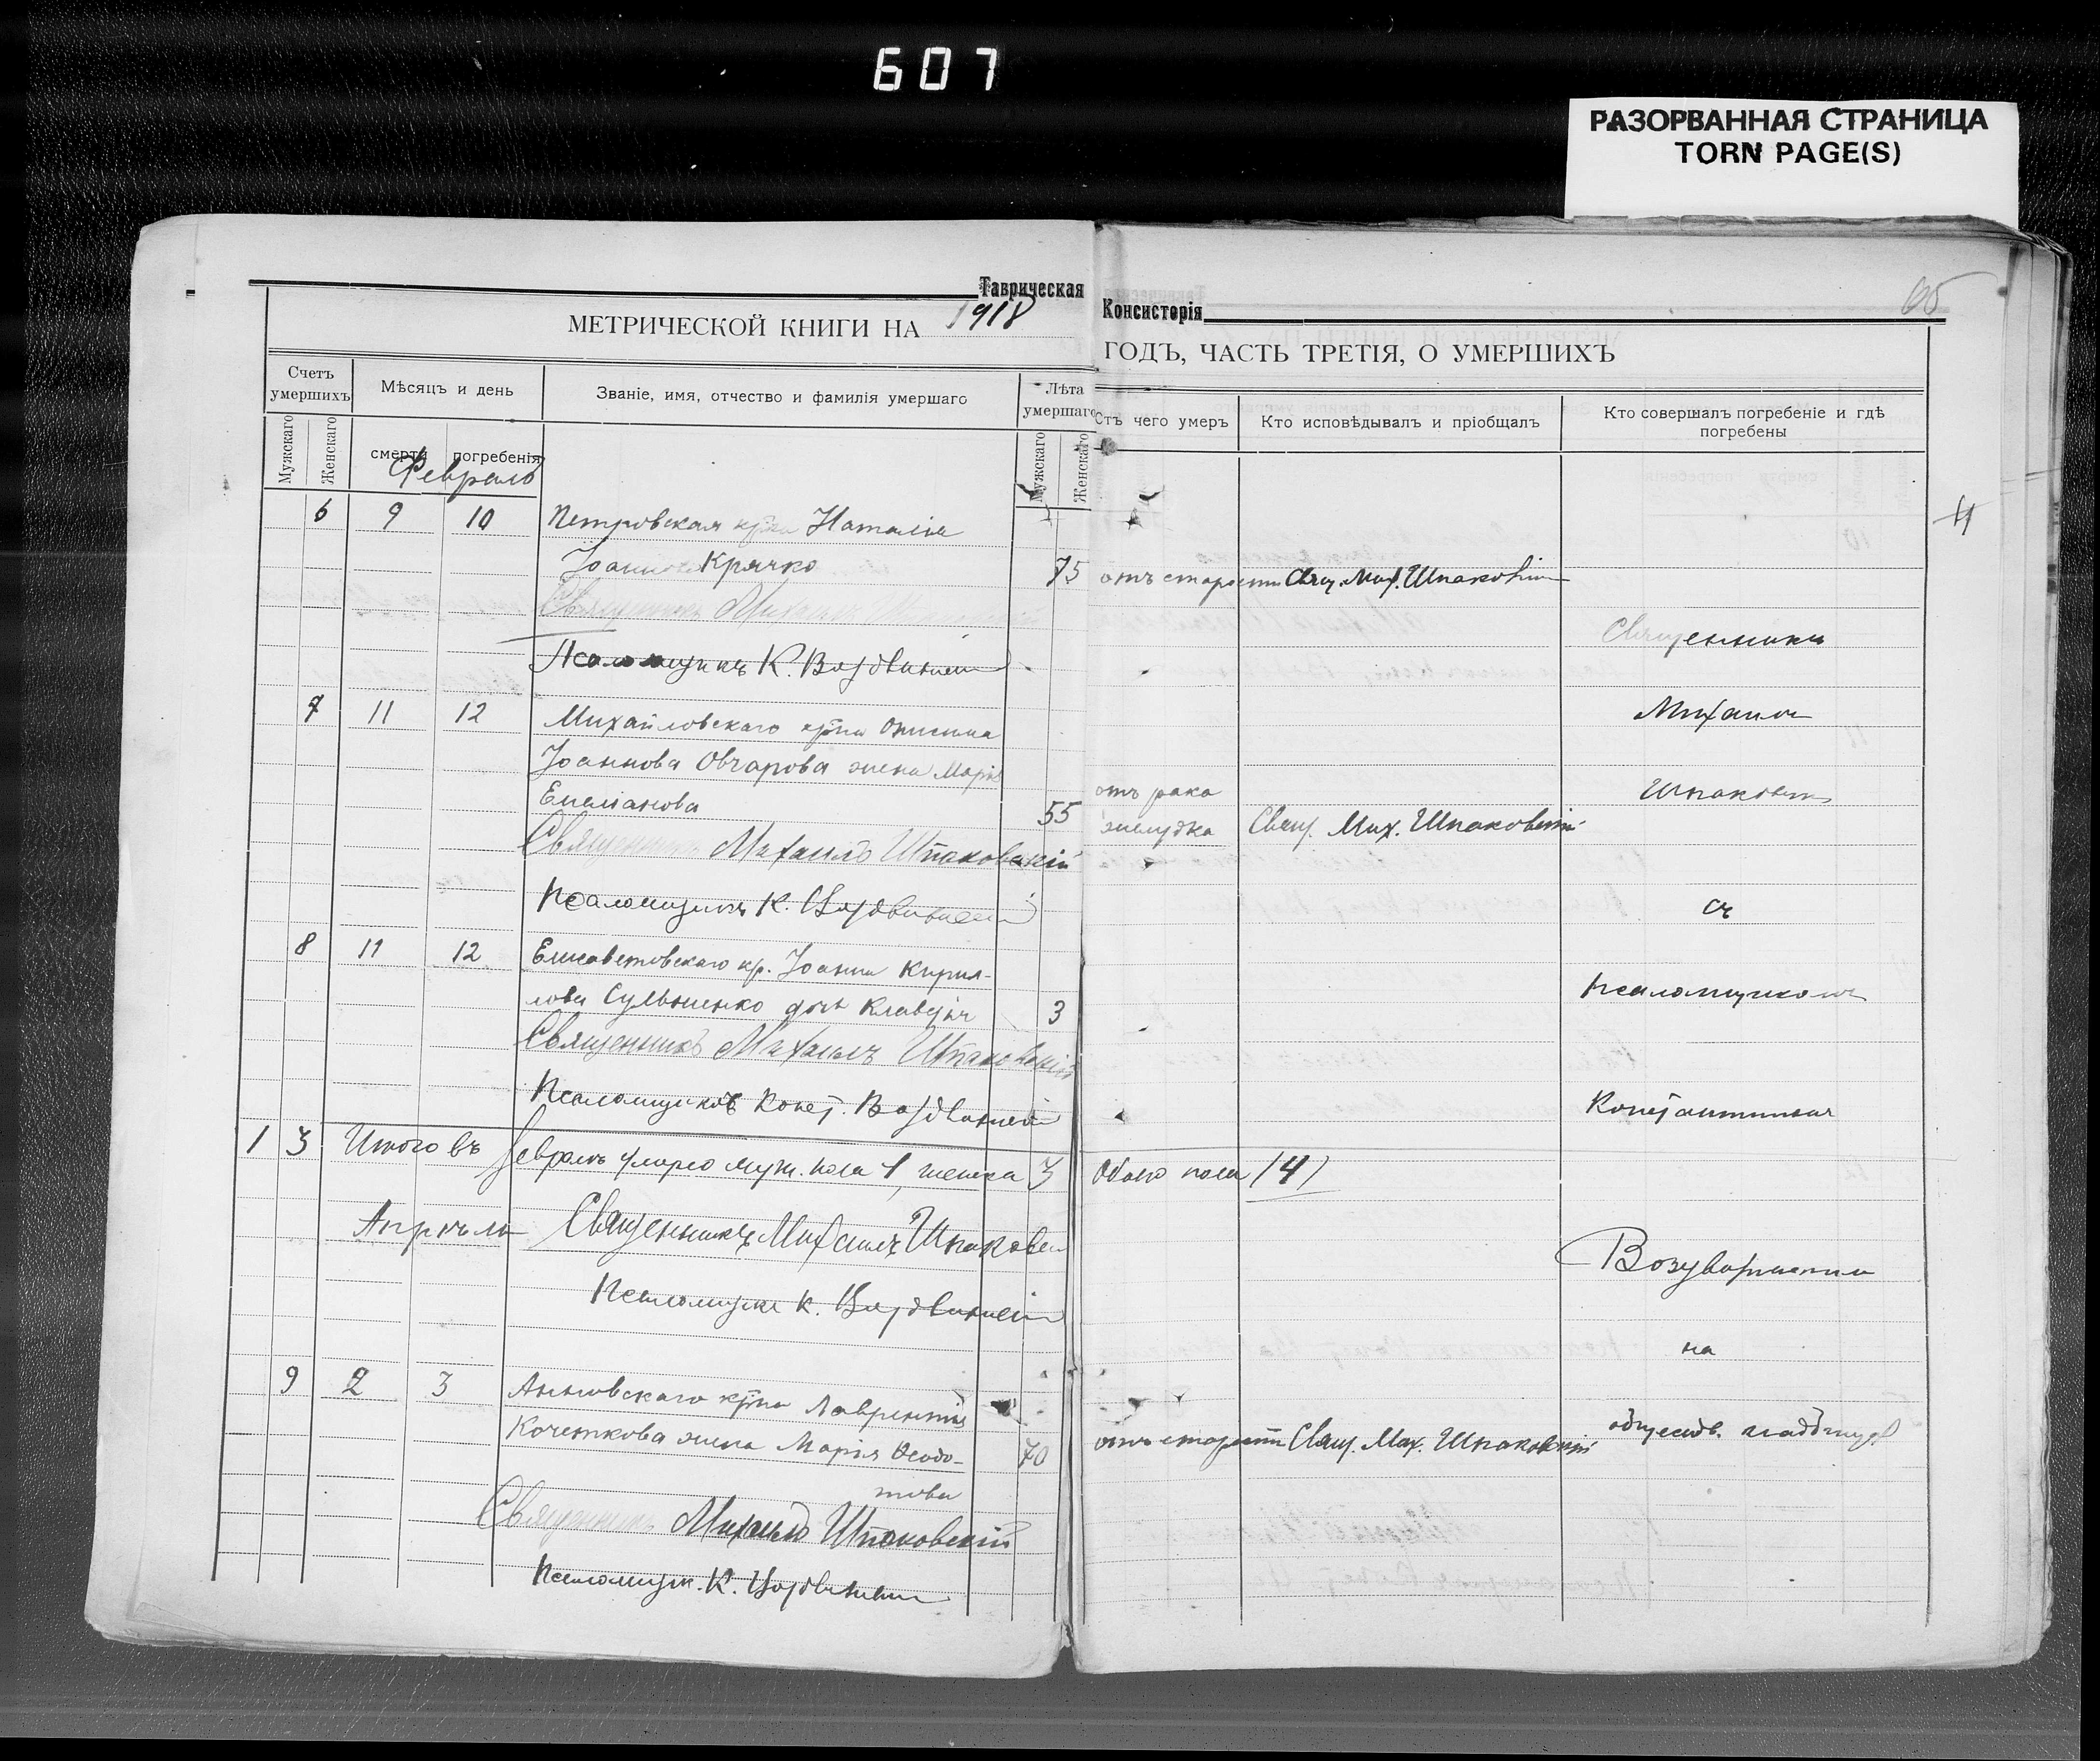 607
РАЗОРВАННАЯ СТРАНИЦА
TORN PAGE(S)
Таврическая
МЕТРИЧЕСКОЙ КНИГИ НА 1918
Счетъ умершихъ
Мужскаго
Женскаго
Мѣсяцъ и день
смерти
погребенія
Званіе, имя, отчество и фамилія умершаго
Лѣта умершаго
Мужскаго
Женскаго
Февраль
6 9 10 Петровская кр-ка Наталія
Іоаннова Крячко 75
Священникъ Михаилъ
Псаломщикъ К. Воздвиженскій
7 11 12 Михайловскаго кр-на Онисима
Іоаннова Овчарова жена Марія
Емеліанова 55
Священникъ Михаилъ Шпаковскій
Псаломщикъ К. Воздвиженскій
8 11 12 Елисаветовскаго кр. Іоанна Кирил-
лова дочь Клавдія 3
Священникъ Михаилъ Шпаковскій
Псаломщикъ Конст. Воздвиженскій
1 3 Итого въ Февралѣ умерло муж. пола 1, женска 3
Апрѣль Священникъ Михаилъ Шпаковскій
Псаломщикъ К. Воздвиженскій
9 2 3 Анновскаго кр-на Лаврентія
Кочеткова жена Марія Ѳеодо-
това 70
Священникъ Михаилъ Шпаковскій
Псаломщик. К. Воздвиженскій
65
Консисторія
ГОДЪ, ЧАСТЬ ТРЕТІЯ, О УМЕРШИХЪ
Отъ чего умеръ
Кто исповѣдывалъ и пріобщалъ
Кто совершалъ погребеніе и гдѣ погребены
отъ старости Свящ. Мих. Шпаковскій
Священникъ
Михаилъ
отъ рака Шпаковскій
желудка Свящ. Мих. Шпаковскій
съ
псаломщикомъ
Константиномъ
Обоего пола (4)
Воздвиженскимъ
на
отъ старости Свящ. Мих. Шпаковскій обществ. кладбищѣ